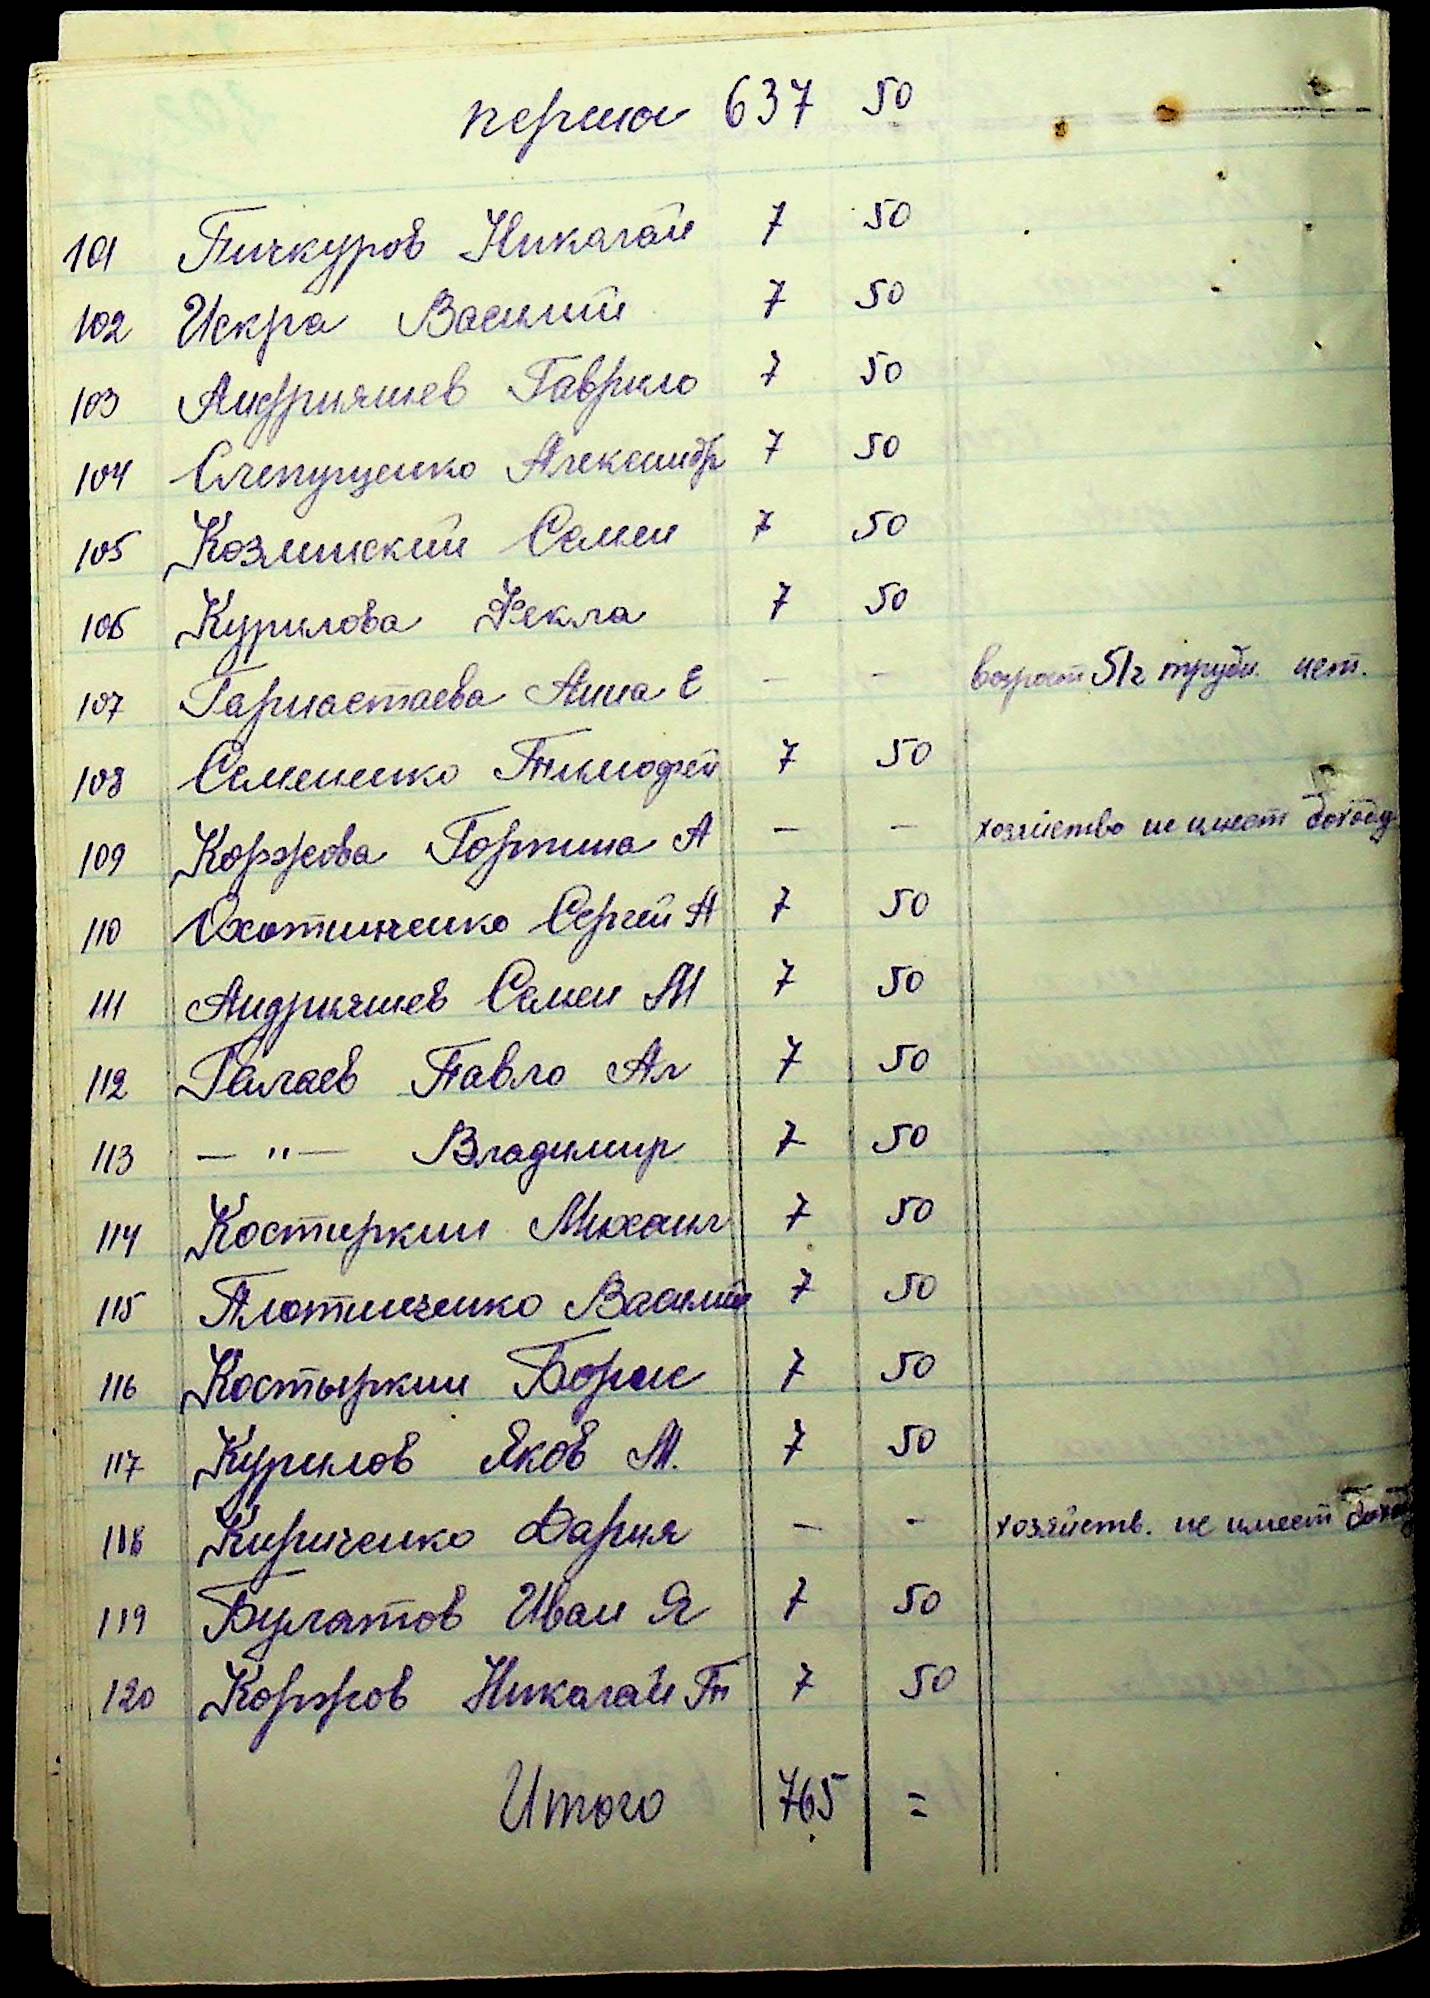 перенос 637 50
101 Пичкуров Николай 7 50
102 Искра Василий 7 50
103 Андрияшев Гаврило 7 50
104 Слепущенко Александр 7 50
105 Козлинский Семен 7 50
106 Курилова Фекла 7 50
107 Гарнастаева Анна Е — — возраст 51 г трудн. нет.
108 Семененко Тимофей 7 50
109 Коржова Горпина А — — хозяйство не имеет доходу
110 Охотниченко Сергей А 7 50
111 Андрияшев Семен М 7 50
112 Галаев Павло Ал 7 50
113 — " — Владимир 7 50
114 Костиркин Михаил 7 50
115 Плотниченко Василий 7 50
116 Костыркин Борис 7 50
117 Курилов Яков М. 7 50
118 Кириченко Дария — — хозяйств. не имеет
119 Булатов Иван Я 7 50
120 Коржов Николай 7 50
Итого 765 =